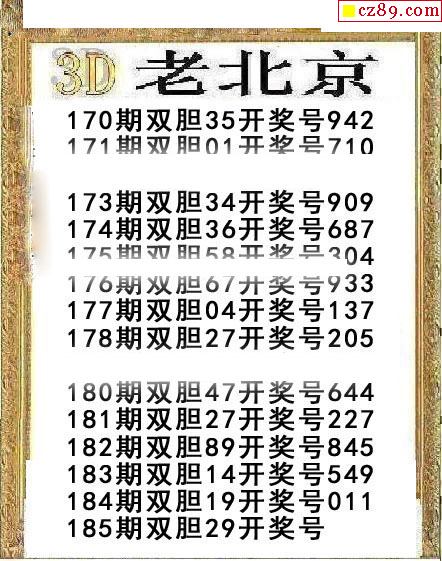 cz89.com
3D 老北京
170期双胆35开奖号942
171期双胆01开奖号710
173期双胆34开奖号909
174期双胆36开奖号687
175期双胆58开奖号304
176期双胆67开奖号933
177期双胆04开奖号137
178期双胆27开奖号205
180期双胆47开奖号644
181期双胆27开奖号227
182期双胆89开奖号845
183期双胆14开奖号549
184期双胆19开奖号011
185期双胆29开奖号